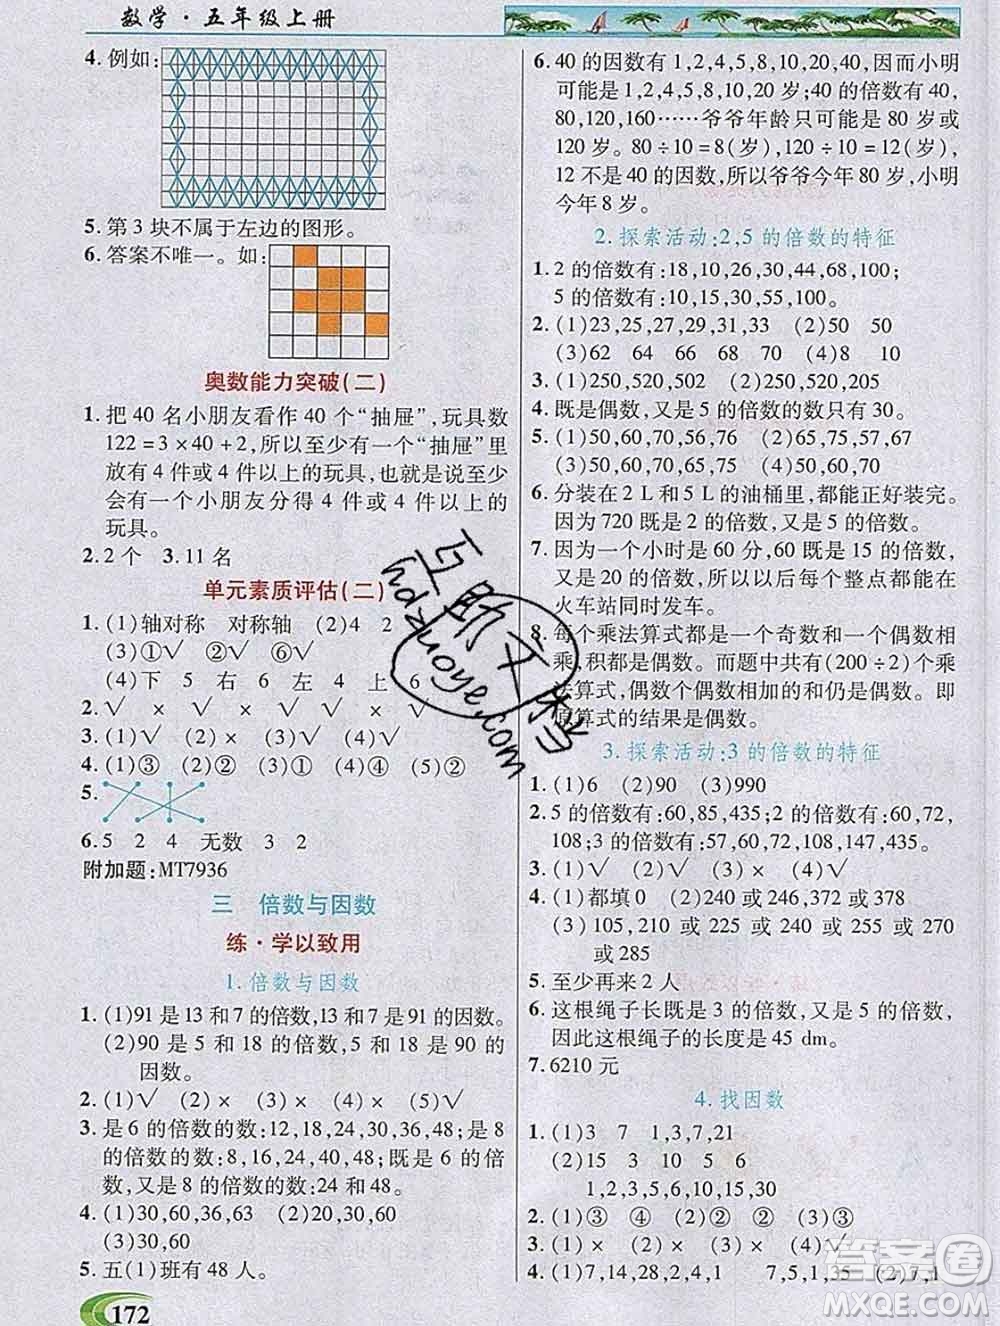 数学·五年级上册
4. 例如:
5. 第 3 块不属于左边的图形。
6. 答案不唯一。如:
奥数能力突破(二)
1. 把 40 名小朋友看作 40 个“抽屉”,玩具数
122=3×40+2,所以至少有一个“抽屉”里
放有 4 件或 4 件以上的玩具,也就是说至少
会有一个小朋友分得 4 件或 4 件以上的
玩具。
2. 2 个 3. 11 名
单元素质评估(二)
1. (1)轴对称 对称轴 (2)4 2
(3)①√ ②√ ⑥√
(4)下 5 右 6 左 4 上 6
2. √ × √ × √ ×
3. (1)√ (2)× (3)√ (4)√
4. (1)③ (2)② (3)① (4)② (5)②
5.
6. 5 2 4 无数 3 2
附加题:MT7936
三 倍数与因数
练·学以致用
1. 倍数与因数
1. (1)91 是 13 和 7 的倍数,13 和 7 是 91 的因数。
(2)90 是 5 和 18 的倍数,5 和 18 是 90 的
因数。
2. (1)√ (2)× (3)× (4)√
3. 是 6 的倍数的数:12,18,24,30,36,48;是 8
的倍数的数:8,16,24,40,48;既是 6 的倍
数,又是 8 的倍数的数:24 和 48。
4. (1)30,60,36,63 (2)20,30,60
(3)30,60
5. 五(1)班有 48 人。
172
6. 40 的因数有 1,2,4,5,8,10,20,40,因而小明
可能是 1,2,4,5,8,10,20 岁;40 的倍数有 40,
80,120,160……爷爷年龄只可能是 80 岁或
120 岁。80÷10=8(岁),120÷10=12(岁),
12 不是 40 的因数,所以爷爷今年 80 岁,小明
今年 8 岁。
2. 探索活动:2,5 的倍数的特征
1. 2 的倍数有:18,10,26,30,44,100;
5 的倍数有:10,15,30,55,100。
2. (1)23,25,27,29,31,33 (2)50 50
(3)62 64 66 68 (4)8 10
3. (1)250,520,502 (2)250,520
4. 既是偶数,又是 5 的倍数的数只有 30。
5. (1)50,60,70,56,76 (2)65,75,57,67
(3)50,60,70,65,75 (4)50,60,70
6. 分装在 2 L 和 5 L 的油桶里,都能正好装完。
因为 720 既是 2 的倍数,又是 5 的倍数。
7. 因为一个小时是 60 分,60 既是 15 的倍数,
又是 20 的倍数,所以每个整点都能在
火车站同时发车。
8. 每个乘法算式都是一个奇数和一个偶数相
乘,积都是偶数。而题中共有(200÷2)个乘
法算式,偶数个偶数相加的和仍是偶数。即
原算式的结果是偶数。
3. 探索活动:3 的倍数的特征
1. (1)6 (2)90 (3)990
2. 5 的倍数有:60,85,435;2 的倍数有:60,72,
108;3 的倍数有:57,60,72,108,147,435。
3. (1)√ (2)√ (3)√ (4)√
4. (1)都填 0 (2)240 或 246,372 或 378
(3)105,210 或 225 或 255 或 240 或 270
或 285
5. 至少再来 2 人
6. 这根绳子长既是 3 的倍数,又是 5 的倍数,
因此这根绳子的长度是 45 dm。
7. 6210 元
4. 找因数
1. (1)3 7 1,3,7,21
(2)15 3 10 5 6
1,2,3,5,6,10,15,30
2. (1)③ ④ (2)② ② (3)② ①
3. (1)× (2)× (3)× (4)√
4. (1)7,14,28,2,4,1 7,5,1,35 (2)7,1
互助文档
hdzuoye.com
答案圈
MXQE.COM